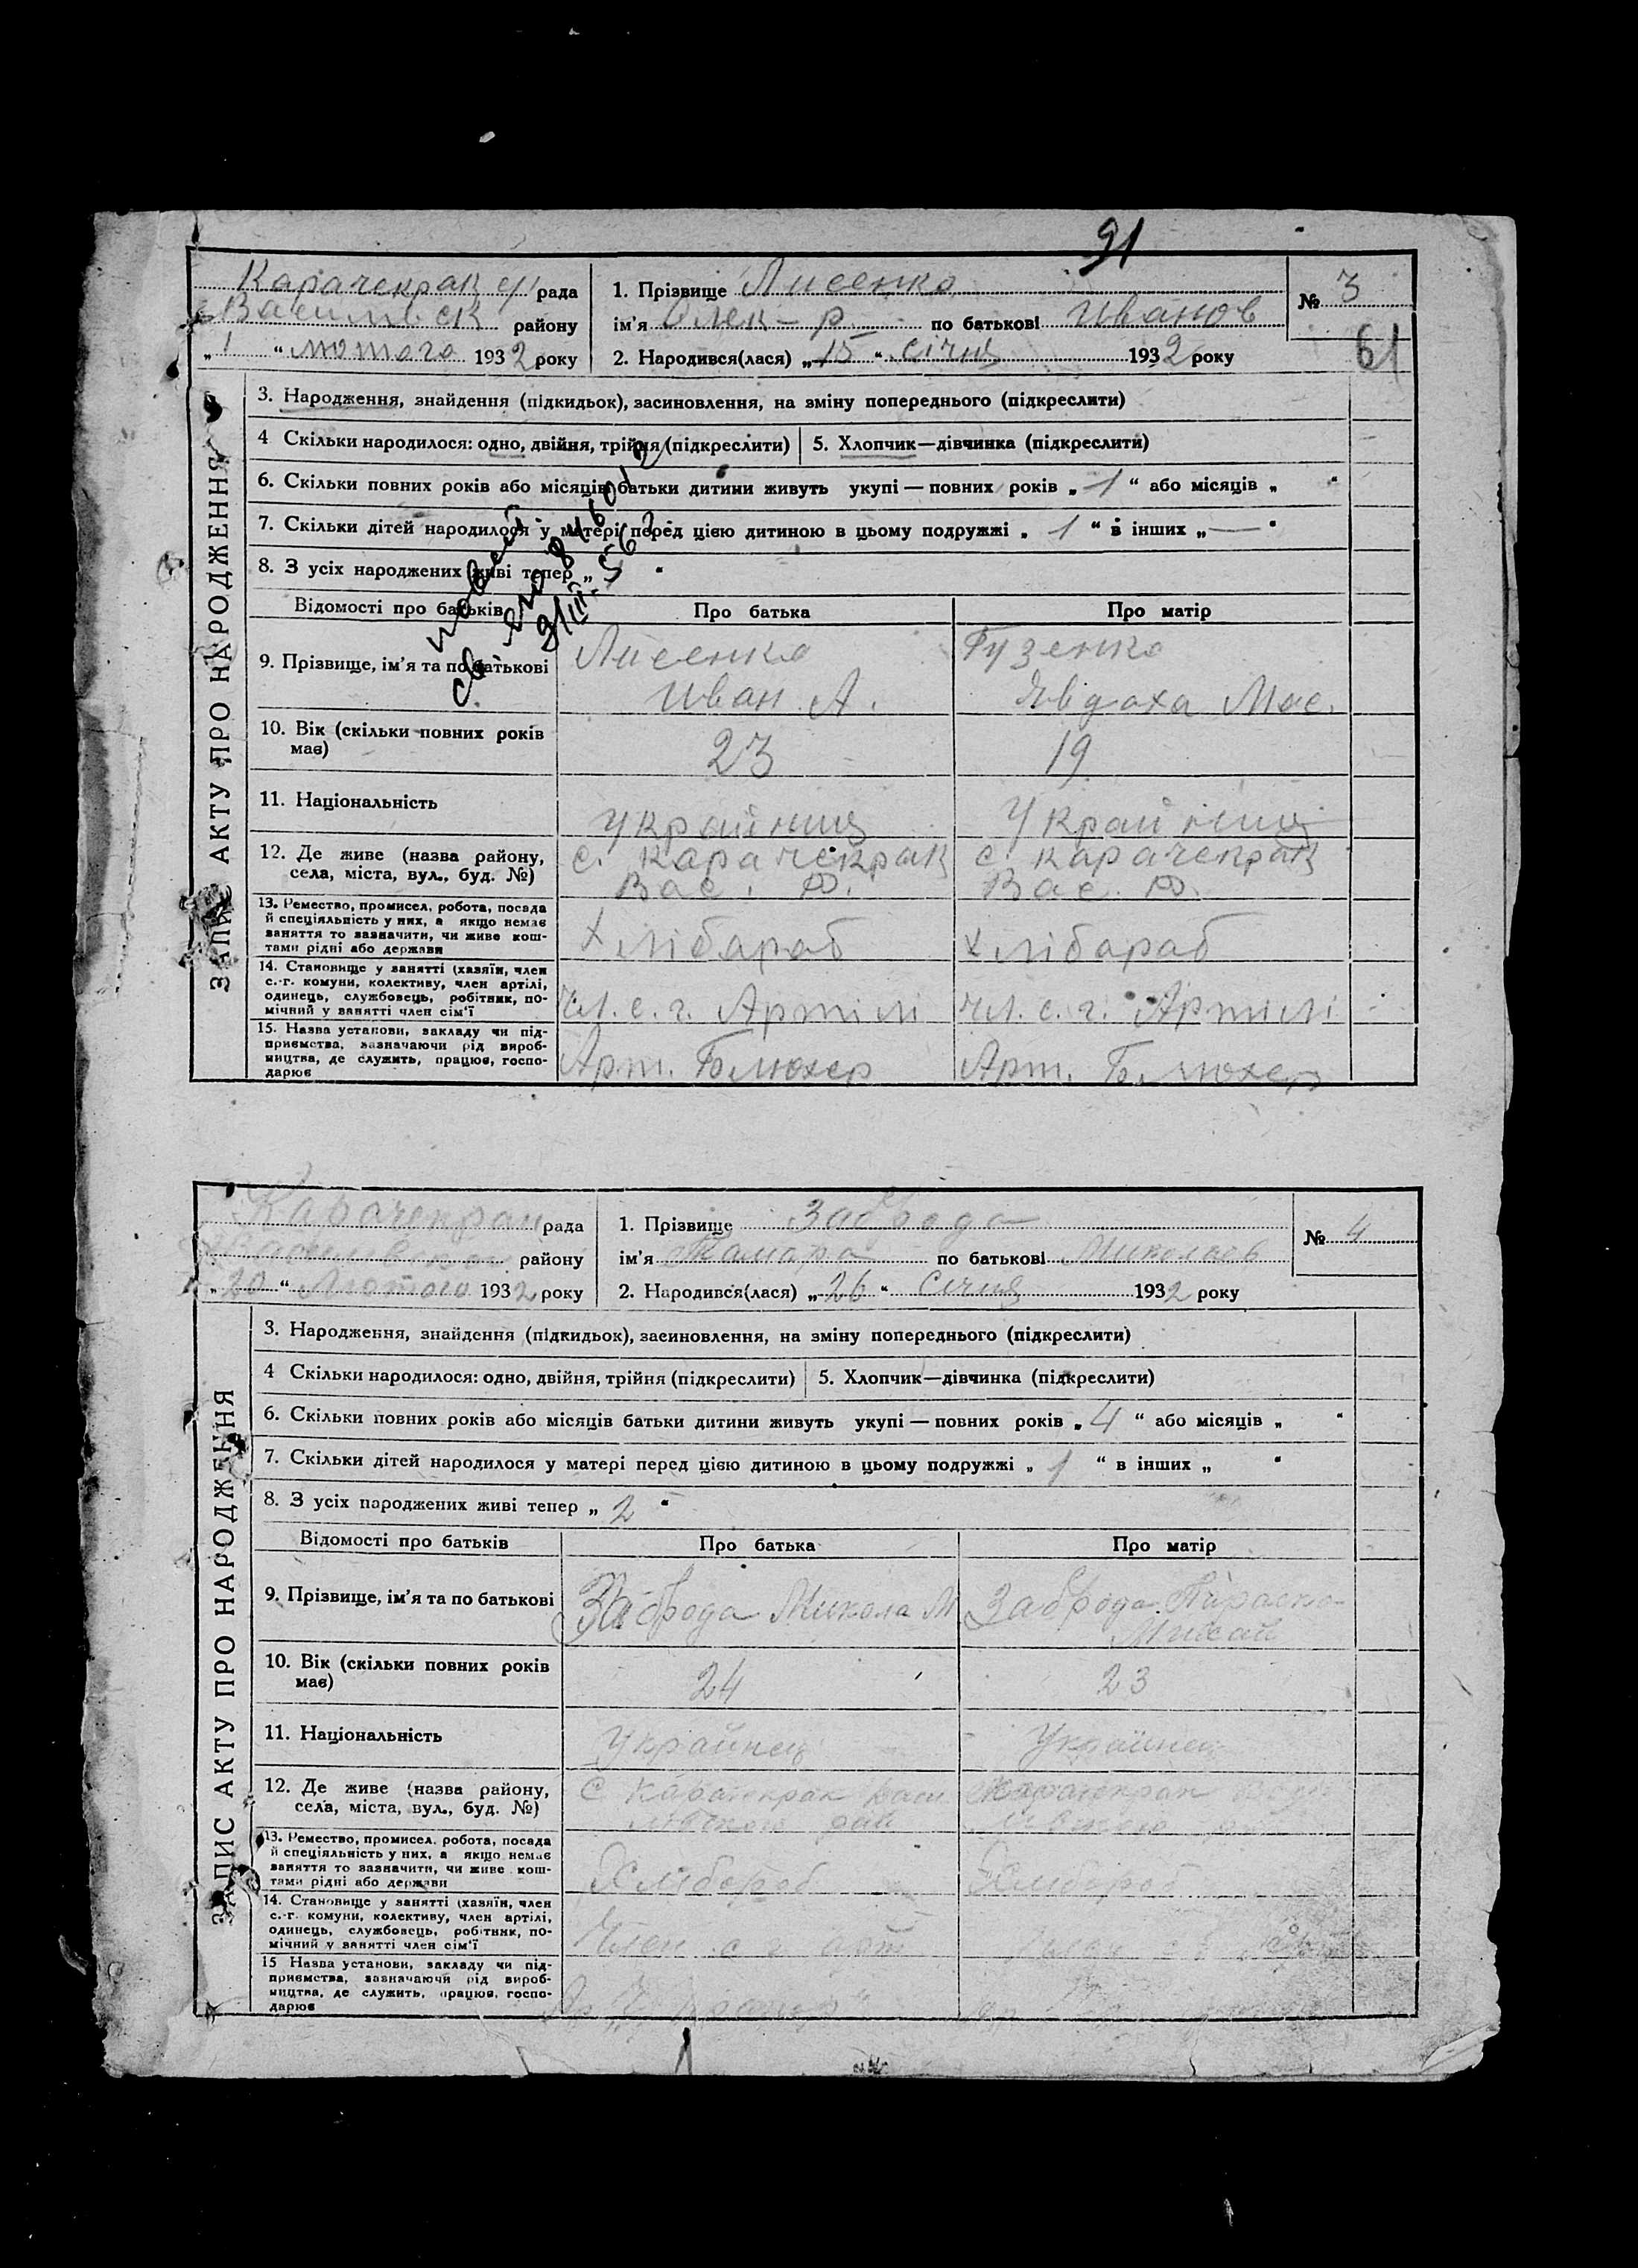 91
Карачекрак рада
Василівск району
„1“ лютого 1932 року
1. Прізвище Лисенко
ім'я Олек-р по батькові Иванов
2. Народився(лася) „15“ січня 1932 року
№ 3
61
ЗАПИС АКТУ ПРО НАРОДЖЕННЯ
3. Народження, знайдення (підкидьок), засиновлення, на зміну попереднього (підкреслити)
4 Скільки народилося: одно, двійня, трійня (підкреслити) 5. Хлопчик—дівчинка (підкреслити)
6. Скільки повних років або місяців батьки дитини живуть укупі — повних років „1“ або місяців „ “
7. Скільки дітей народилося у матері перед цією дитиною в цьому подружжі „1“ в інших „—“
8. З усіх народжених живі тепер „ “
Відомості про батьків Про батька Про матір
9. Прізвище, ім'я та по батькові Лисенко Иван А. Гузенко Явдоха Мас.
10. Вік (скільки повних років має) 23 19
11. Національність Українця Українця
12. Де живе (назва району, села, міста, вул., буд. №) с. Карачекрак Вас. Р. с. Карачекрак Вас. Р.
13. Ремество, промисел, робота, посада й спеціяльність у них, а якщо немає заняття то зазначити, чи живе коштами рідні або держави Хлібараб Хлібараб
14. Становище у занятті (хазяїн, член с.-г. комуни, колективу, член артілі, одинець, службовець, робітник, помічний у занятті член сім'ї Чл. с. г. Артілі Чл. с. г. Артілі
15. Назва установи, закладу чи підприємства, зазначаючи рід виробництва, де служить, працює, господарює Арт. Блюхер Арт. Блюхер
Карачекрак рада
району
„20“ Лютого 1932 року
1. Прізвище Заброда
ім'я Тамара по батькові Миколаев
2. Народився(лася) „26“ Січня 1932 року
№ 4
ЗАПИС АКТУ ПРО НАРОДЖЕННЯ
3. Народження, знайдення (підкидьок), засиновлення, на зміну попереднього (підкреслити)
4 Скільки народилося: одно, двійня, трійня (підкреслити) 5. Хлопчик—дівчинка (підкреслити)
6. Скільки повних років або місяців батьки дитини живуть укупі — повних років „4“ або місяців „ “
7. Скільки дітей народилося у матері перед цією дитиною в цьому подружжі „1“ в інших „ “
8. З усіх народжених живі тепер „2“
Відомості про батьків Про батька Про матір
9. Прізвище, ім'я та по батькові Заброда Микола М Заброда
10. Вік (скільки повних років має) 24 23
11. Національність Українець Українец
12. Де живе (назва району, села, міста, вул., буд. №) С Карачекрак Карачекрак
13. Ремество, промисел, робота, посада й спеціяльність у них, а якщо немає заняття то зазначити, чи живе коштами рідні або держави Хлібороб Хлібороб
14. Становище у занятті (хазяїн, член с.-г. комуни, колективу, член артілі, одинець, службовець, робітник, помічний у занятті член сім'ї Член
15 Назва установи, закладу чи підприємства, зазначаючи рід виробництва, де служить, працює, господарює